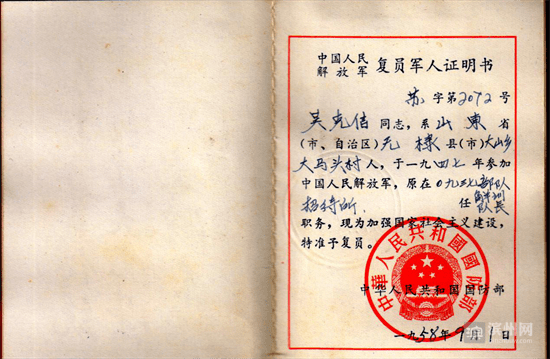 中国人民
解放军 复员军人证明书
苏字第2072号
吴克信同志，系山东省
（市、自治区）无棣县（市）大山乡
大马头村人，于一九四七年参加
中国人民解放军，原在〇九三七部队
招待所 任 队长
职务，现为加强国家社会主义建设，
特准予复员。
中华人民共和国国防部
中華人民共和國國防部
一九58年9月1日
滨州网